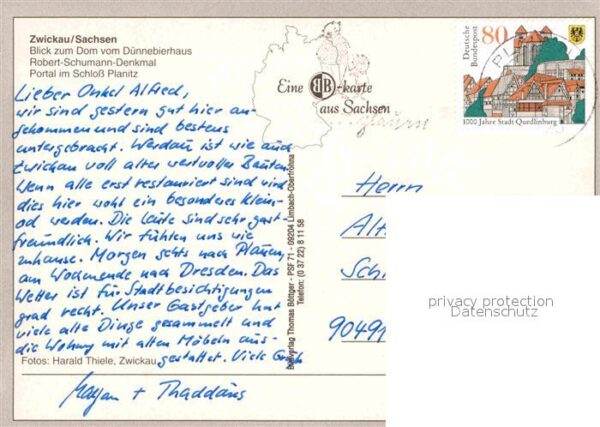 Zwickau/Sachsen
Blick zum Dom vom Dünnebierhaus
Robert-Schumann-Denkmal
Portal im Schloß Planitz
Lieber Onkel Alfred,
wir sind gestern gut hier an-
gekommen und sind bestens
untergebracht. Werdau ist wie auch
Zwickau voll alter wertvoller Bauten.
Wenn alle erst restauriert sind wird
dies hier wohl ein besonderes Klein-
od werden. Die Leute sind sehr gast-
freundlich. Wir fühlen uns wie
zuhause. Morgen gehts nach Plauen,
am Wochenende nach Dresden. Das
Wetter ist für Stadtbesichtigungen
grad recht. Unser Gastgeber hat
viele alte Dinge gesammelt und
die Wohnung mit alten Möbeln aus-
gestattet. Viele
Fotos: Harald Thiele, Zwickau
+ Thaddäus
Eine BB-karte
aus Sachsen
Deutsche
Bundespost
80
1000 Jahre Stadt Quedlinburg
Bildverlag Thomas Böttger - PSF 71 - 09204 Limbach-Oberfrohna
Telefon: (0 37 22) 8 11 58
Herrn
Alf
Sch
90491
privacy protection
Datenschutz